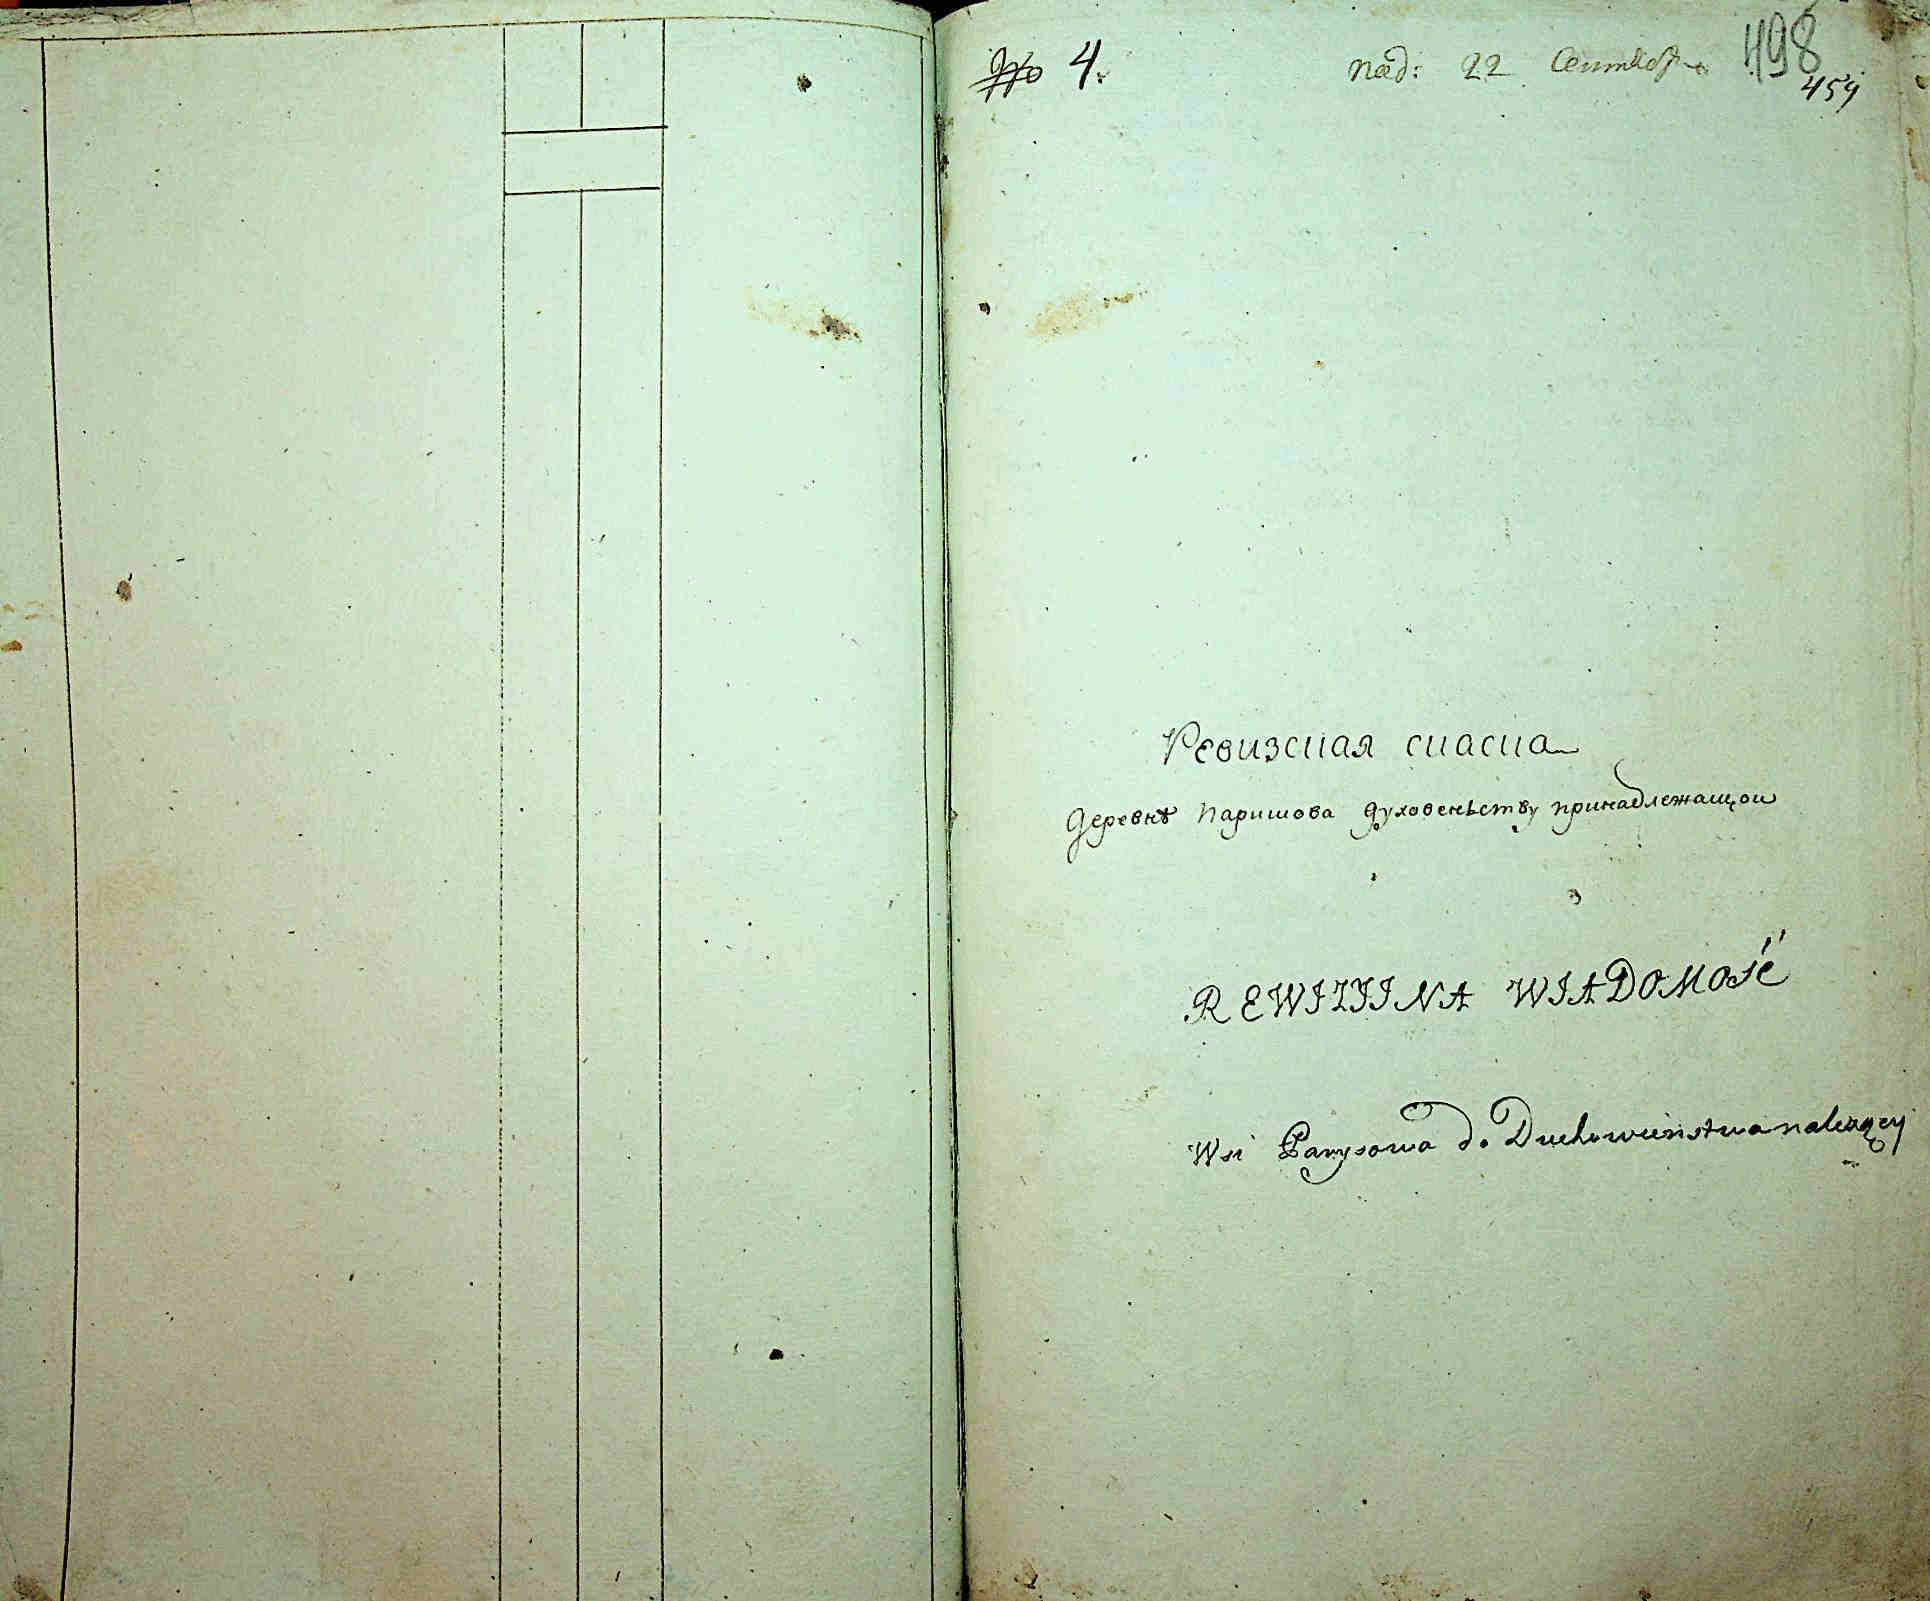 № 4.
под: 22 Сентября
498
459
Ревизская сказка
деревнѣ Паришова духовеньству принадлежащои
REWIZIINA WIADOMOŚĆ
Wsi Parysowa do Duchowieństwa należącey